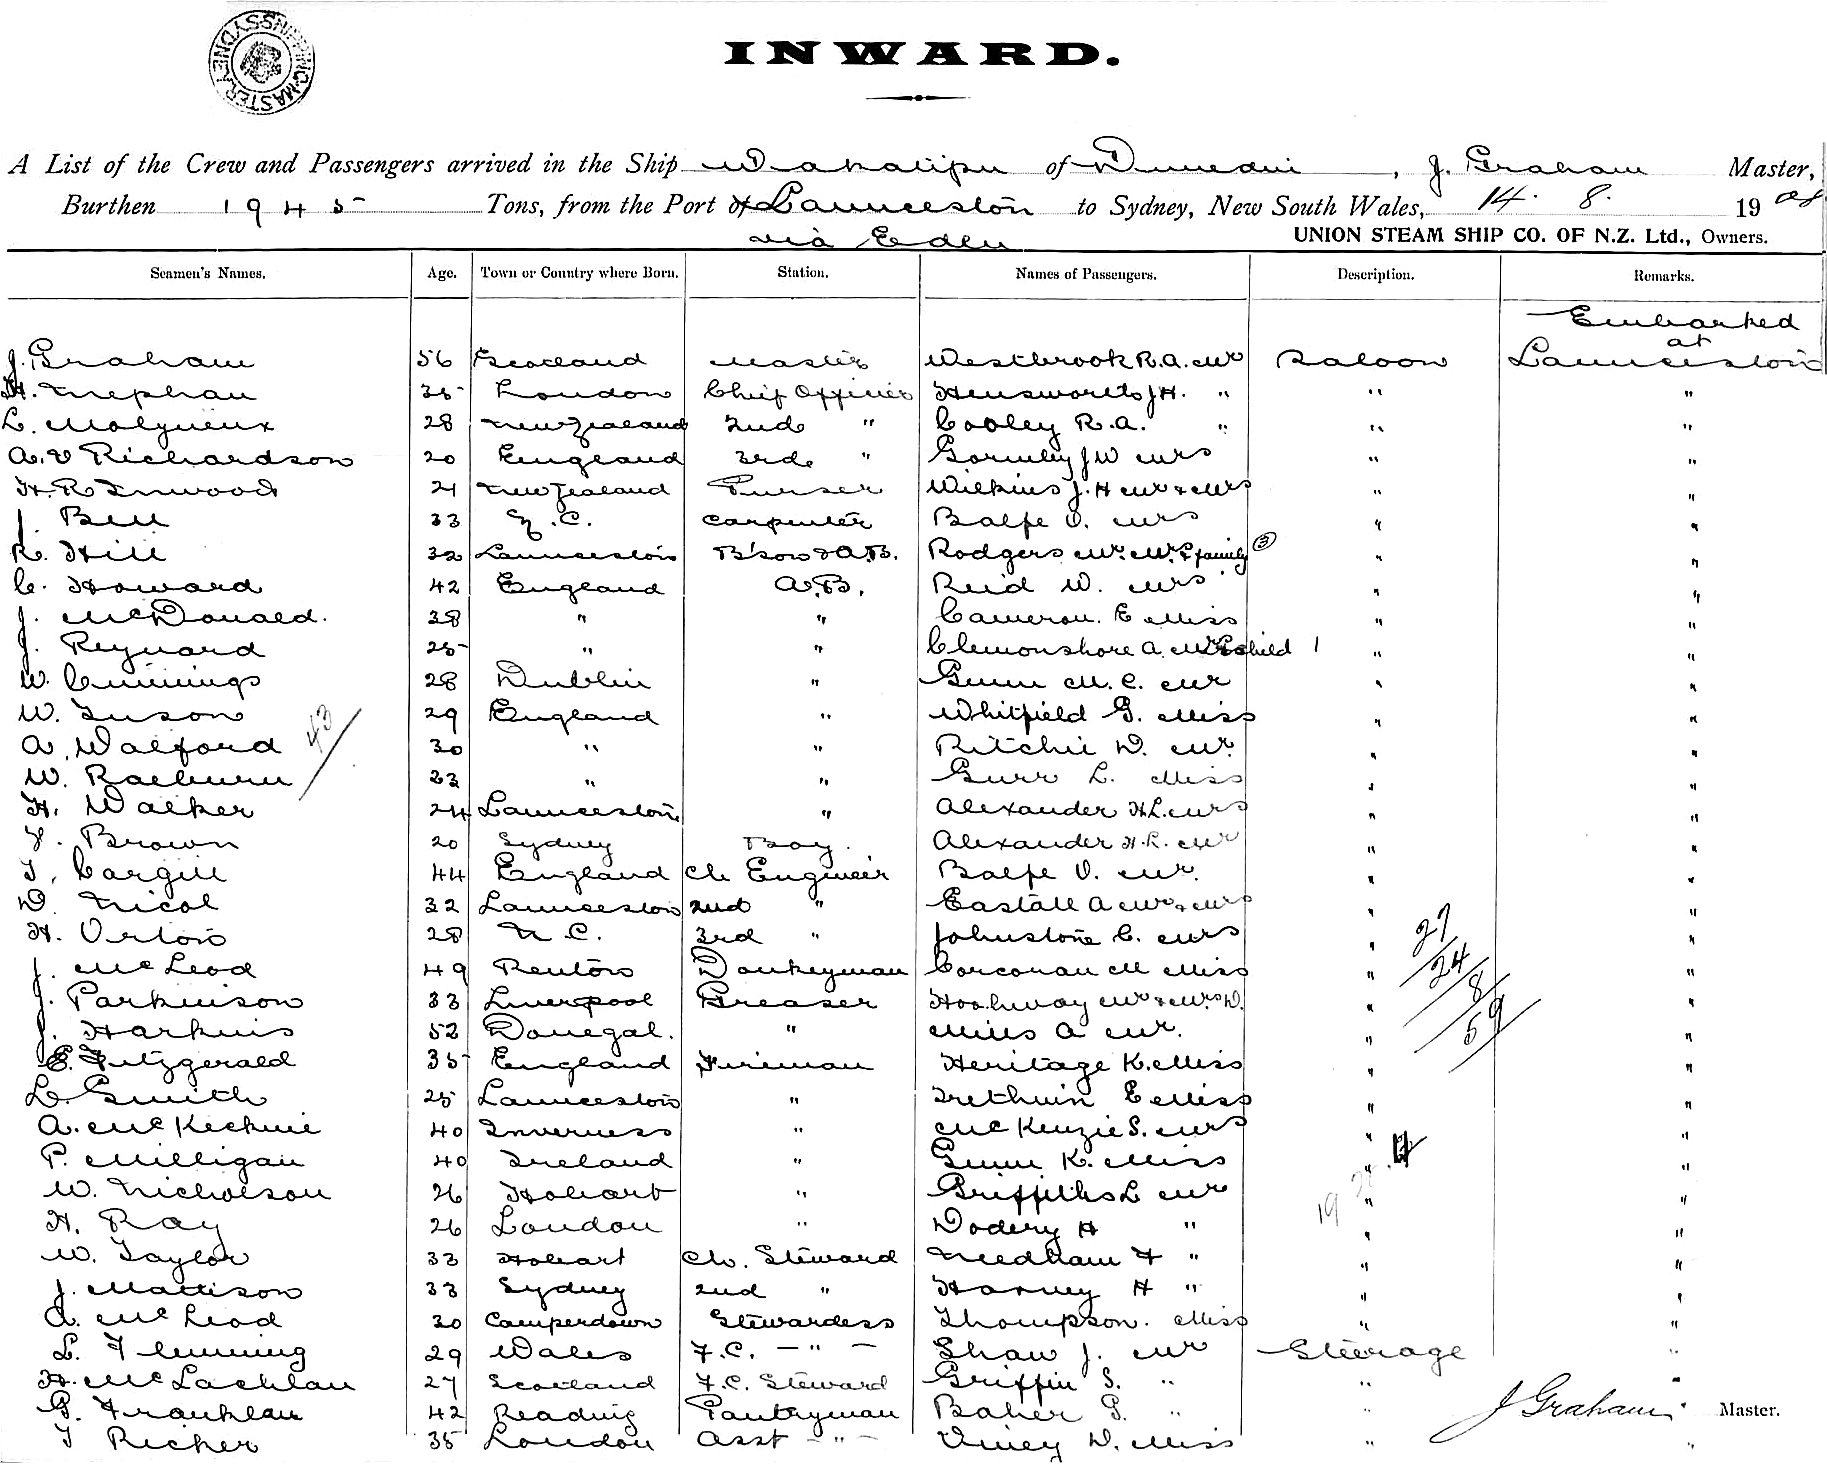 SHIPPING MASTER SYDNEY
INWARD.
A List of the Crew and Passengers arrived in the Ship Wakatipu of Dunedin, J. Graham Master,
Burthen 1945 Tons, from the Port of Launceston to Sydney, New South Wales, 14. 8. 1908
via Eden UNION STEAM SHIP CO. OF N.Z. Ltd., Owners.
Seamen's Names. Age. Town or Country where Born. Station. Names of Passengers. Description. Remarks.
Embarked
at
J. Graham 56 Scotland Master Westbrook R.A. Mr Saloon Launceston
H. Mephan 35 London Chief Officer Hensworth J.H. " " "
L. Molyneux 28 New Zealand 2nd " Cooley R.A. " " "
A.V Richardson 20 England 3rd " Gormley J W Mrs " "
H.R Inwood 21 New Zealand Purser Wilkins J. H Mr & Mrs " "
J. Bell 33 N.C. Carpenter Balfe O. Mrs " "
R. Hill 32 Launceston B'son & A.B. Rodgers Mr. Mrs & family (3) " "
C. Howard 42 England A.B. Reid W. Mrs " "
J. McDonald. 38 " " Cameron. E Miss " "
J. Reynard 25 " " Clemonshore A. Mrs & child 1 " "
W. Cummings 28 Dublin " Gunn M. C. Mr " "
W. Tuson 29 England " Whitfield G. Miss " "
43
A. Walford 30 " " Ritchie D. Mr. " "
W. Raeburn 23 " " Gurr L. Miss " "
H. Walker 24 Launceston " Alexander H.L. Mrs " "
F. Brown 20 Sydney Boy. Alexander H.L. Mr " "
T. Cargill 44 England Ch Engineer Balfe O. Mr. " "
D. Nicol 32 Launceston 2nd " Eastall A Mr & Mrs " "
H. Orton 28 N C. 3rd " Johnstone C. Mrs " "
27
24
8
59
J. McLeod 49 Renton Donkeyman Corcoran M Miss " "
J. Parkinson 33 Liverpool Greaser Hookway Mr & Mrs D. " "
J. Harkins 52 Donegal. " Mills A Mr. " "
E. Fitzgerald 35 England Fireman Heritage K. Miss " "
L. Smith 25 Launceston " Trethuin E Miss " "
A. McKechnie 40 Inverness " McKenzie S. Mrs " "
P. Milligan 40 Ireland " Gunn K. Miss " "
W. Nicholson 26 Hobart " Griffiths L Mr " "
19
H. Ray 26 London " Dodery H " " "
W. Taylor 33 Hobart Ch. Steward Needham F " " "
J. Mattison 33 Sydney 2nd " Harvey H " " "
A. McLeod 30 Camperdown Stewardess Thompson. Miss " "
L. Flemming 29 Wales F.C. — " — Shaw J. Mr Steerage "
H. McLachlan 27 Scotland F.C. Steward Griffin S. " " "
G. Franklan 42 Reading Pantryman Baker G. " " " J Graham Master.
T Richer 35 London Asst — " — Viney D. Miss " "